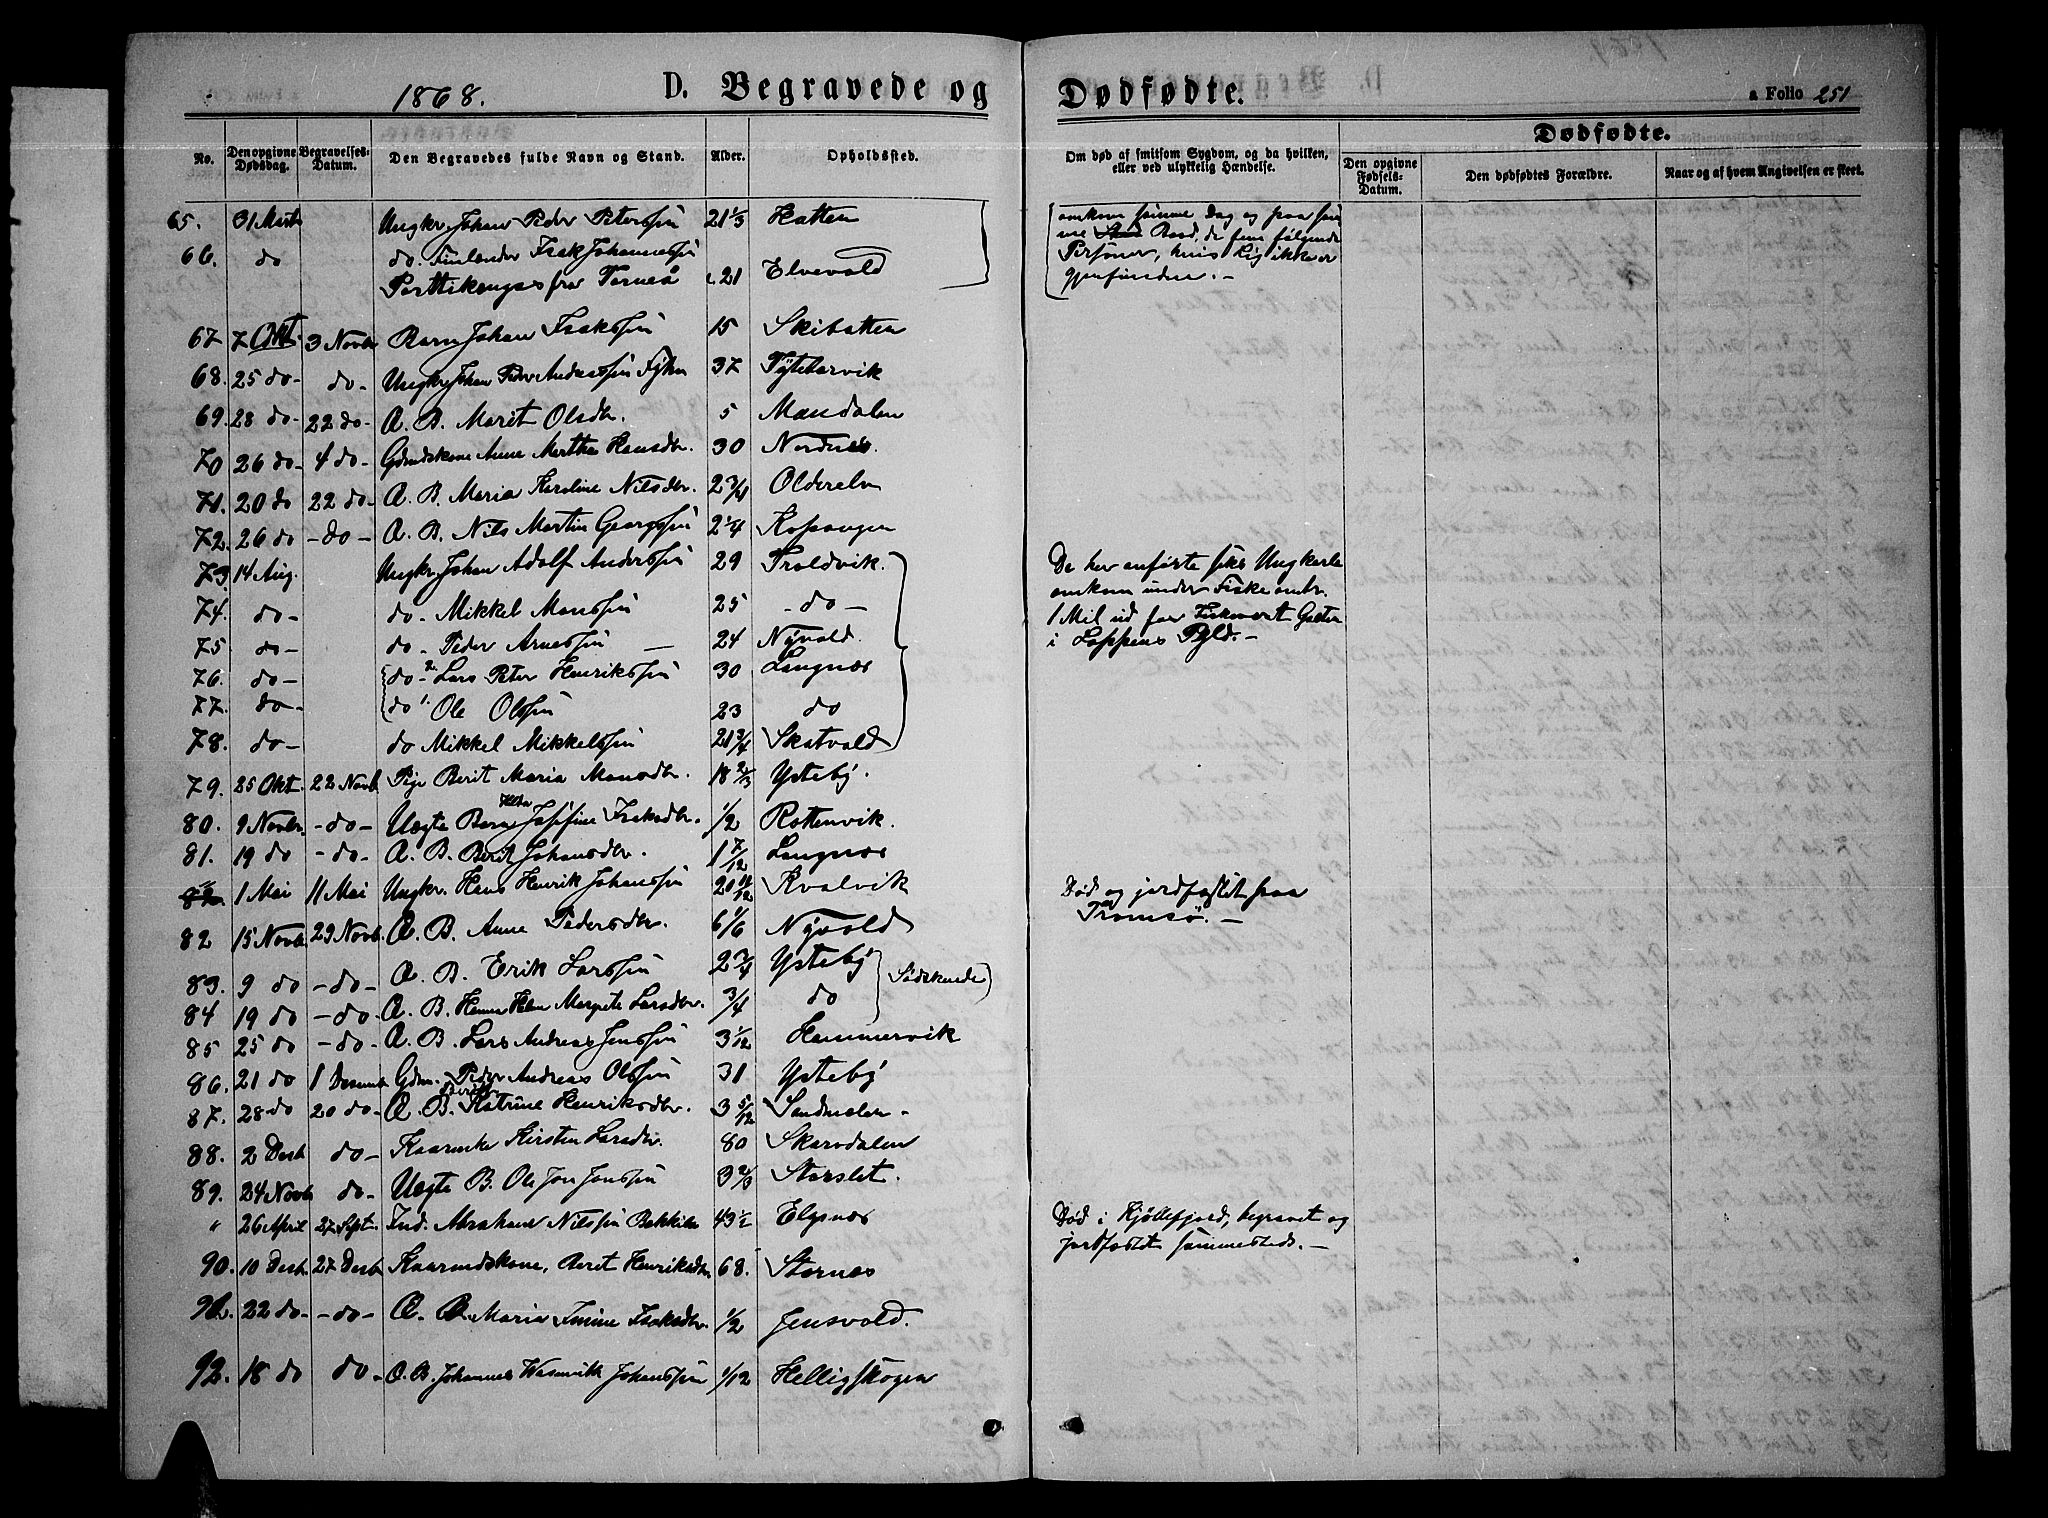 1868. D. Begravede og Dødfødte. a Folio 251
No. Den opgivne Dødsdag. Begravelses-Datum. Den Begravedes fulde Navn og Stand. Alder. Opholdssted. Om død af smitsom Sygdom, og da hvilken, eller ved ulykkelig Hændelse. Dødfødte.
Den opgivne Fødsels-Datum. Den dødfødtes Forældre. Naar og af hvem Angivelsen er skeet.
65. 31 Marts Ungkr. Johan Peder Peterssøn 21 1/3 Hatten omkom samme Dag og paa samme Baad, de fem følgende Personer, hvis Lig ikke er gjenfundne. -
66. do do. Finlænder Isak Johannessøn
fra Torneå 21 Elvevold
67 7 Okt. 3 Novbr Barn Johan Isakssøn 15 Skibotten
68. 25 do - do - Ungkr. Johan Peder Anderssøn 37 Tyttebærvik
69. 28 do - 22 do - Æ. B. Marit Olsdtr. 5 Mandalen
70 26 do - 4 do - Gdmdskone Anne Marthe Hansdtr. 30 Nordnæs
71. 20 do 22 do - Æ. B. Maria Karoline Nilsdtr. 2 3/4 Olderelv
72. 26 do - do - Æ. B. Nils Martin Georgssøn 2 1/4 Kopangen
73 14 Aug. Ungkr. Johan Adolf Anderssøn 29 Troldvik. De her anførte seks Ungkarle
74. do - do - Mikkel Monssøn 25 - do - omkom under Fiske omtr.
75. do - do - Peder Arnessøn - 24 Nyvold. 1 Mil ud for Fiskeværet
76. do - do - 2. Lars Peter Henrikssøn 30 Langnæs i Loppens Pgld. -
77. do - do 1. Ole Olssøn 23 do
78. do - do Mikkel Mikkelssøn 21 3/4 Skatvold
79. 25 Okt. 22 Novb. Pige Berit Maria Monsdtr. 18 2/3 Ysteby.
80. 9 Novbr. - do - Uægte Barn Josefine Isaksdtr. 1/2 Rottenvik.
81. 19 do - do - Æ. B. Berit Johansdtr. 1 7/12 Langnæs
" 1 Mai 11 Mai Ungkr. Hans Henrik Johanssøn 20 11/12 Kvalvik Død og jordfæstet paa Tromsø. -
82 15 Novb. 29 Novb. Æ. B. Anne Pedersdtr. 6 1/6 Nyvold
83. 9 do - do - Æ. B. Erik Larssøn 2 3/4 Ysteby (Sødskende)
84 19 do - do - Æ. B. Margrete Larsdtr. 3/4 do
85 25 do - do - Æ. B. Lars Andreas Jenssøn 3 1/12 Hammervik
86. 21 do 1 Desemb. Gdm. Peder Andreas Olssøn 31 Ysteby
87. 28 do 20 do - Æ. B. Katrine Henriksdtr. 3 5/12 Sandmelen -
88. 2 Desb do - Kirsten Larsdtr. 80 Skarvdalen
89. 24 Novb do - Uægte B. Ole Jon Jonssøn 3 2/3 Storslet.
" 26 April 27 Sept. Ind. Abraham Nilssøn Bakkila 43 1/2 Elgsnæs Død i Kjøllefjord, begravet og jordfæstet sammesteds. -
90. 10 Desb. 27 Desb. Kaarmdskone, Berit Henriksdtr. 68. Stornæs
91. 22 do - - do - Æ. B. Maria Isaksdtr. 1/2 Jensvold.
92. 18 do do - Æ. B. Johannes Johanssøn 1/12 Helligskogen